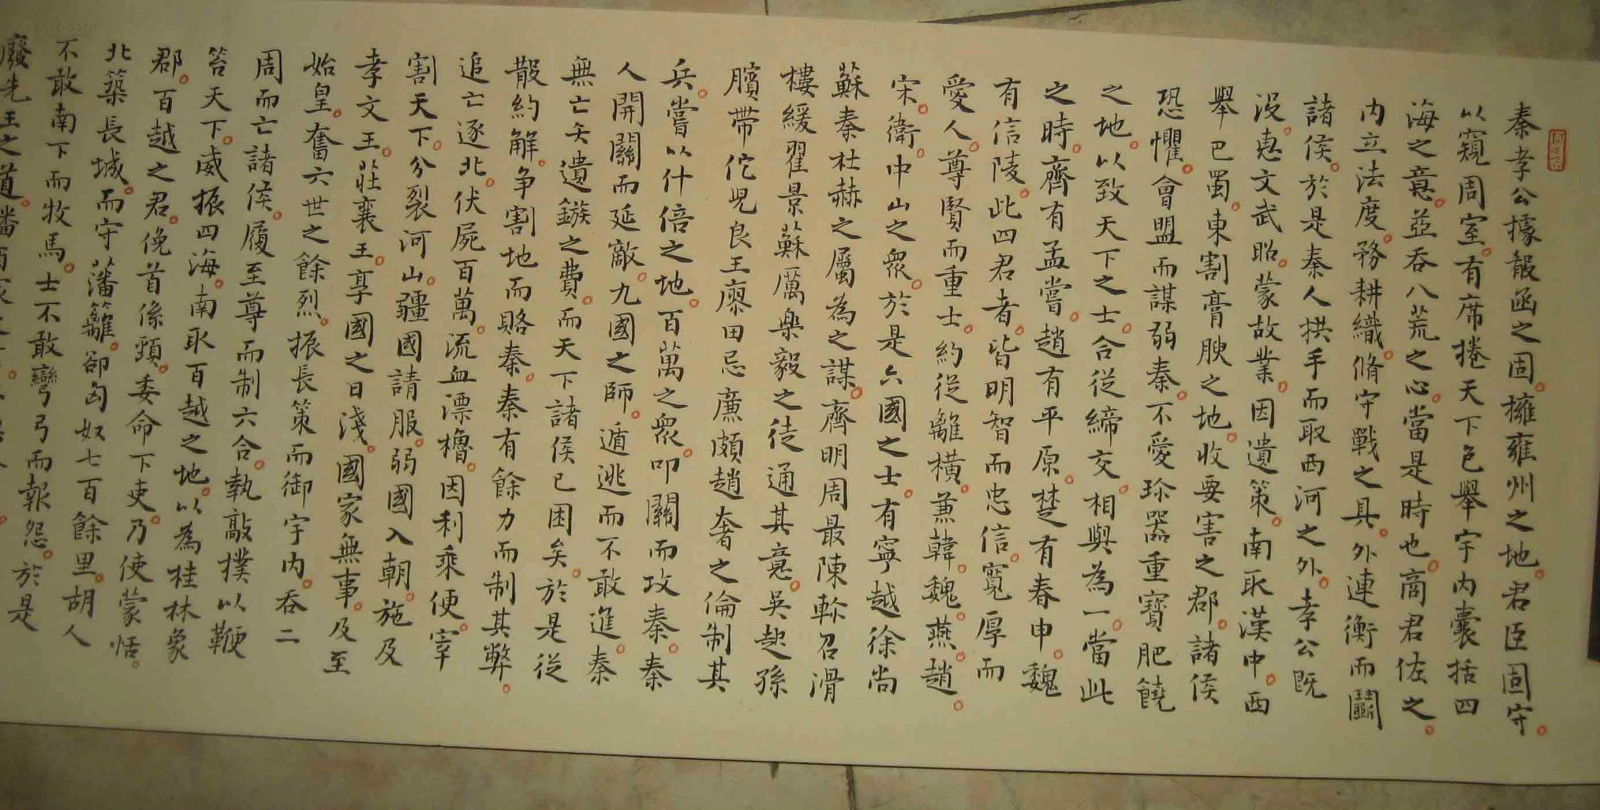 秦孝公據殽函之固擁雍州之地君臣固守
以窺周室有席捲天下包舉宇內囊括四
海之意並吞八荒之心當是時也商君佐之
內立法度務耕織脩守戰之具外連衡而鬭
諸侯於是秦人拱手而取西河之外孝公既
沒惠文武昭蒙故業因遺策南取漢中西
舉巴蜀東割膏腴之地收要害之郡諸侯
恐懼會盟而謀弱秦不愛珍器重寶肥饒
之地以致天下之士合從締交相與為一當此
之時齊有孟嘗趙有平原楚有春申魏
有信陵此四君者皆明智而忠信寬厚而
愛人尊賢而重士約從離橫兼韓魏燕趙
宋衛中山之眾於是六國之士有寧越徐尚
蘇秦杜赫之屬為之謀齊明周最陳軫召滑
樓緩翟景蘇厲樂毅之徒通其意吳起孫
臏帶佗兒良王廖田忌廉頗趙奢之倫制其
兵嘗以什倍之地百萬之眾叩關而攻秦秦
人開關而延敵九國之師遁逃而不敢進秦
無亡矢遺鏃之費而天下諸侯已困矣於是從
散約解爭割地而賂秦秦有餘力而制其弊
追亡逐北伏屍百萬流血漂櫓因利乘便宰
割天下分裂河山疆國請服弱國入朝施及
孝文王莊襄王享國之日淺國家無事及至
始皇奮六世之餘烈振長策而御宇內吞二
周而亡諸侯履至尊而制六合執敲撲以鞭
笞天下威振四海南取百越之地以為桂林象
郡百越之君俛首係頸委命下吏乃使蒙恬
北築長城而守藩籬卻匈奴七百餘里胡人
不敢南下而牧馬士不敢彎弓而報怨於是
廢先王之道